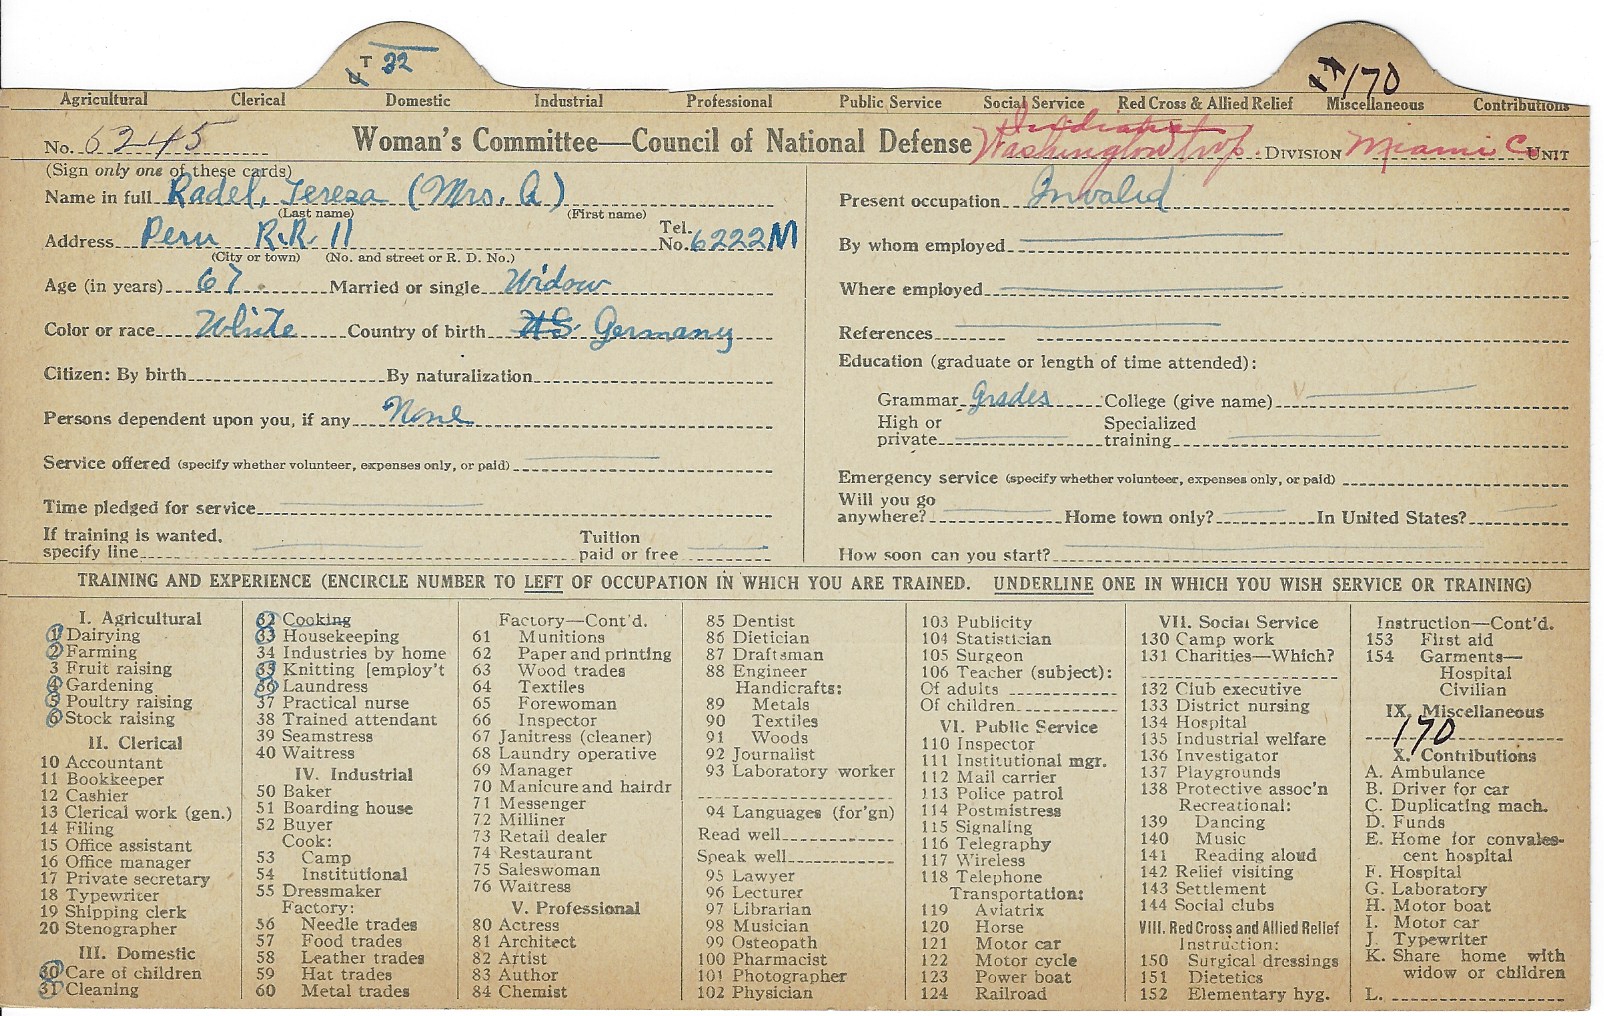 T 32
170
Agricultural Clerical Domestic Industrial Professional Public Service Social Service Red Cross & Allied Relief Miscellaneous Contributions
No. 6245 Woman's Committee—Council of National Defense Washington twp. DIVISION Miami C. UNIT
(Sign only one of these cards)
Name in full Radel, Tereza (Mrs. A)
(Last name) (First name)
Address Peru R.R. 11 Tel. No. 6222M
(City or town) (No. and street or R. D. No.)
Age (in years) 67 Married or single Widow
Color or race White Country of birth U.S. Germany
Citizen: By birth By naturalization
Persons dependent upon you, if any None
Service offered (specify whether volunteer, expenses only, or paid)
Time pledged for service
If training is wanted, specify line Tuition paid or free
Present occupation Invalid
By whom employed
Where employed
References
Education (graduate or length of time attended):
Grammar Grades College (give name)
High or private Specialized training
Emergency service (specify whether volunteer, expenses only, or paid)
Will you go anywhere? Home town only? In United States?
How soon can you start?
TRAINING AND EXPERIENCE (ENCIRCLE NUMBER TO LEFT OF OCCUPATION IN WHICH YOU ARE TRAINED. UNDERLINE ONE IN WHICH YOU WISH SERVICE OR TRAINING)
I. Agricultural
1 Dairying
2 Farming
3 Fruit raising
4 Gardening
5 Poultry raising
6 Stock raising
II. Clerical
10 Accountant
11 Bookkeeper
12 Cashier
13 Clerical work (gen.)
14 Filing
15 Office assistant
16 Office manager
17 Private secretary
18 Typewriter
19 Shipping clerk
20 Stenographer
III. Domestic
30 Care of children
31 Cleaning
32 Cooking
33 Housekeeping
34 Industries by home
35 Knitting [employ't
36 Laundress
37 Practical nurse
38 Trained attendant
39 Seamstress
40 Waitress
IV. Industrial
50 Baker
51 Boarding house
52 Buyer
Cook:
53 Camp
54 Institutional
55 Dressmaker
Factory:
56 Needle trades
57 Food trades
58 Leather trades
59 Hat trades
60 Metal trades
Factory—Cont'd.
61 Munitions
62 Paper and printing
63 Wood trades
64 Textiles
65 Forewoman
66 Inspector
67 Janitress (cleaner)
68 Laundry operative
69 Manager
70 Manicure and hairdr
71 Messenger
72 Milliner
73 Retail dealer
74 Restaurant
75 Saleswoman
76 Waitress
V. Professional
80 Actress
81 Architect
82 Artist
83 Author
84 Chemist
85 Dentist
86 Dietician
87 Draftsman
88 Engineer
Handicrafts:
89 Metals
90 Textiles
91 Woods
92 Journalist
93 Laboratory worker
94 Languages (for'gn)
Read well
Speak well
95 Lawyer
96 Lecturer
97 Librarian
98 Musician
99 Osteopath
100 Pharmacist
101 Photographer
102 Physician
103 Publicity
104 Statistician
105 Surgeon
106 Teacher (subject):
Of adults
Of children
VI. Public Service
110 Inspector
111 Institutional mgr.
112 Mail carrier
113 Police patrol
114 Postmistress
115 Signaling
116 Telegraphy
117 Wireless
118 Telephone
Transportation:
119 Aviatrix
120 Horse
121 Motor car
122 Motor cycle
123 Power boat
124 Railroad
VII. Social Service
130 Camp work
131 Charities—Which?
132 Club executive
133 District nursing
134 Hospital
135 Industrial welfare
136 Investigator
137 Playgrounds
138 Protective assoc'n
Recreational:
139 Dancing
140 Music
141 Reading aloud
142 Relief visiting
143 Settlement
144 Social clubs
VIII. Red Cross and Allied Relief
Instruction:
150 Surgical dressings
151 Dietetics
152 Elementary hyg.
Instruction—Cont'd.
153 First aid
154 Garments—
Hospital
Civilian
IX. Miscellaneous
170
X. Contributions
A. Ambulance
B. Driver for car
C. Duplicating mach.
D. Funds
E. Home for convales-
cent hospital
F. Hospital
G. Laboratory
H. Motor boat
I. Motor car
J. Typewriter
K. Share home with
widow or children
L.